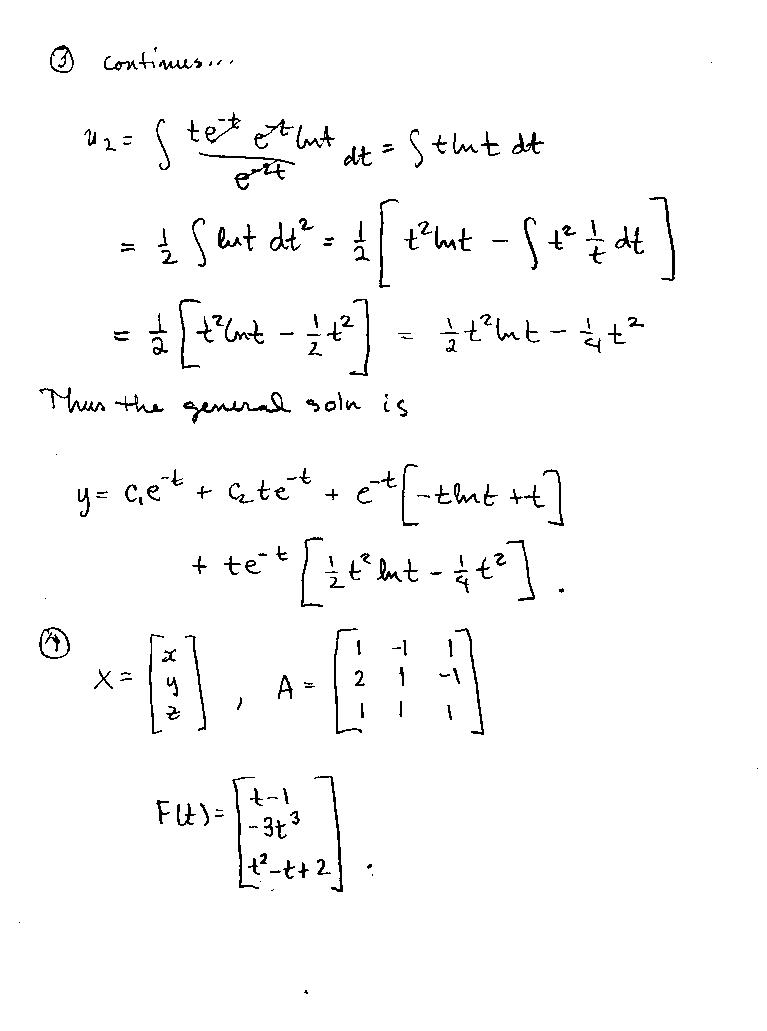 ③ continues...
u₂ = ∫ te⁻ᵗ e⁻ᵗ lnt / e⁻²ᵗ dt = ∫ t lnt dt
= 1/2 ∫ lnt dt² = 1/2 [ t² lnt - ∫ t² 1/t dt ]
= 1/2 [ t² lnt - 1/2 t² ] = 1/2 t² ln t - 1/4 t²
Thus the general soln is
y = c₁e⁻ᵗ + c₂te⁻ᵗ + e⁻ᵗ [ -t lnt + t ]
+ te⁻ᵗ [ 1/2 t² ln t - 1/4 t² ] .
④ X = [ x y z ] , A = [ 1 -1 1
2 1 -1
1 1 1 ]
F(t) = [ t-1
-3t³
t²-t+2 ] .